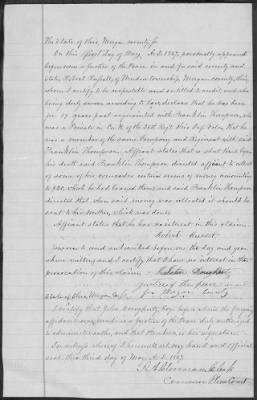 The State of Ohio, Morgan county ss
On this first day of May, A.D. 1867, personally appeared
before me a Justice of the Peace in and for said county and
State, Robert Russell, of Windsor township, Morgan county, Ohio,
whom I certify to be respectable and entitled to credit, and who
being duly sworn according to law, declares that he has been
for 17 years past acquainted with Franklin Thompson, who
was a Private in Co. H of the 25th Regt Ohio Inf. Vols, that he
was a member of the same Company and Regiment with said
Franklin Thompson. Affiant states that a short time before
his death said Franklin Thompson directed affiant to collect
of some of his comrades certain sums of money amounting
to $80, which he had loaned them, and said Franklin Thompson
directed that when said money was collected it should be
sent to his mother, which was done.
Affiant states that he has no interest in this claim.
Robert Russell
Sworn to and subscribed before me the day and year
above written, and I certify that I have no interest in the
prosecution of this claim.
Justice of the peace
for Morgan County
State of Ohio, Morgan Co. ss.
I certify that John before whom the foregoing
affidavit was made is a Justice of the Peace duly authorized
to administer oaths, and that the above is his signature.
In witness whereof I hereunto set my hand and official
seal this third day of May, A.D. 1867.
Clerk
Common Pleas Court